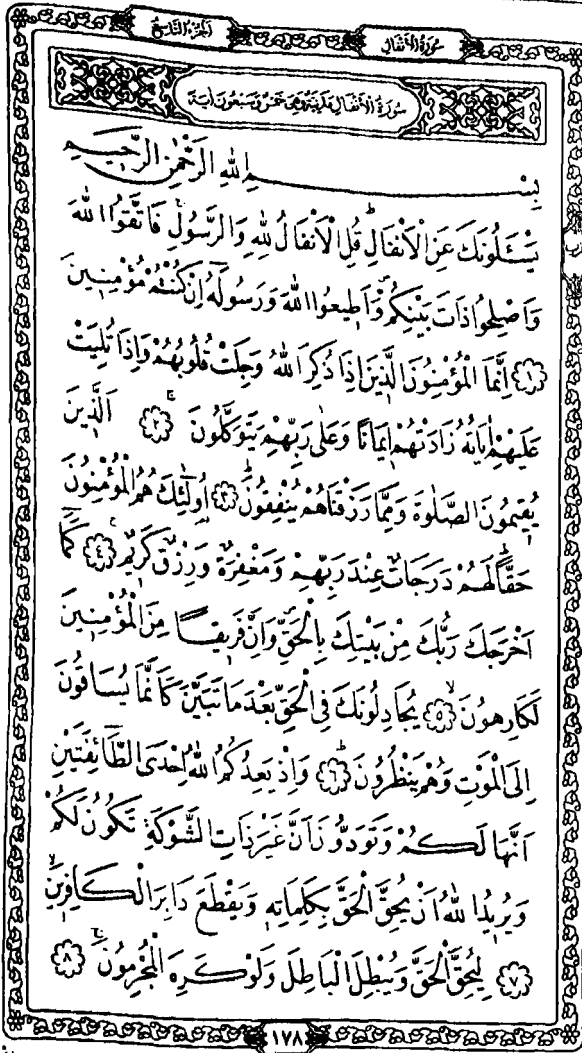 سُورَةُ الْاَنْفَالِ
اَلْجُزْءُ التَّاسِعُ
سُورَةُ الْاَنْفَالِ مَدَنِيَّةٌ وَهِيَ خَمْسٌ وَسَبْعُونَ اٰيَةً
بِسْمِ اللهِ الرَّحْمٰنِ الرَّحِيمِ
يَسْـَٔلُونَكَ عَنِ الْاَنْفَالِۜ قُلِ الْاَنْفَالُ لِلهِ وَالرَّسُولِۚ فَاتَّقُوا اللهَ
وَاَصْلِحُوا ذَاتَ بَيْنِكُمْۖ وَاَطِيعُوا اللهَ وَرَسُولَهُٓ اِنْ كُنْتُمْ مُؤْمِنِينَ
﴿١﴾ اِنَّمَا الْمُؤْمِنُونَ الَّذِينَ اِذَا ذُكِرَ اللهُ وَجِلَتْ قُلُوبُهُمْ وَاِذَا تُلِيَتْ
عَلَيْهِمْ اٰيَاتُهُ زَادَتْهُمْ اِيمَانًا وَعَلٰى رَبِّهِمْ يَتَوَكَّلُونَۚ ﴿٢﴾ اَلَّذِينَ
يُقِيمُونَ الصَّلٰوةَ وَمِمَّا رَزَقْنَاهُمْ يُنْفِقُونَۜ ﴿٣﴾ اُو۬لٰٓئِكَ هُمُ الْمُؤْمِنُونَ
حَقًّاۜ لَهُمْ دَرَجَاتٌ عِنْدَ رَبِّهِمْ وَمَغْفِرَةٌ وَرِزْقٌ كَرِيمٌۚ ﴿٤﴾ كَمَٓا
اَخْرَجَكَ رَبُّكَ مِنْ بَيْتِكَ بِالْحَقِّۖ وَاِنَّ فَرِيقًا مِنَ الْمُؤْمِنِينَ
لَكَارِهُونَۙ ﴿٥﴾ يُجَادِلُونَكَ فِي الْحَقِّ بَعْدَ مَا تَبَيَّنَ كَاَنَّمَا يُسَاقُونَ
اِلَى الْمَوْتِ وَهُمْ يَنْظُرُونَۜ ﴿٦﴾ وَاِذْ يَعِدُكُمُ اللهُ اِحْدَى الطَّٓائِفَتَيْنِ
اَنَّهَا لَكُمْ وَتَوَدُّونَ اَنَّ غَيْرَ ذَاتِ الشَّوْكَةِ تَكُونُ لَكُمْ
وَيُرِيدُ اللهُ اَنْ يُحِقَّ الْحَقَّ بِكَلِمَاتِهِ وَيَقْطَعَ دَابِرَ الْكَافِرِينَۙ
﴿٧﴾ لِيُحِقَّ الْحَقَّ وَيُبْطِلَ الْبَاطِلَ وَلَوْ كَرِهَ الْمُجْرِمُونَۚ ﴿٨﴾
١٧٨